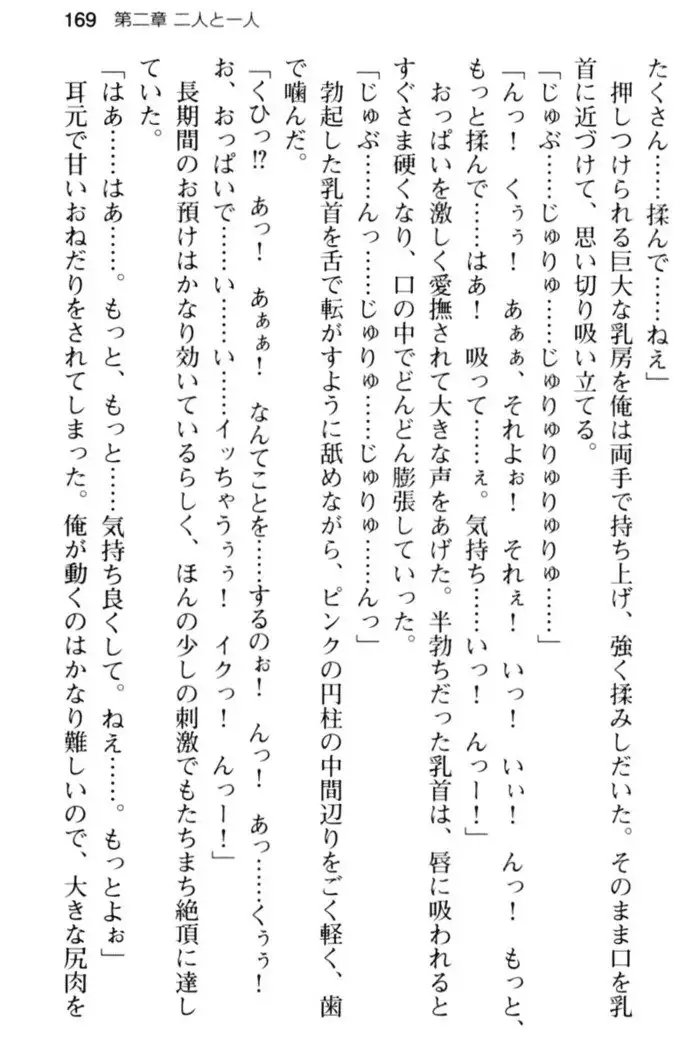 169 第二章 二人と一人
たくさん……揉んで……ねえ」
　押しつけられる巨大な乳房を俺は両手で持ち上げ、強く揉みしだいた。そのまま口を乳
首に近づけて、思い切り吸い立てる。
「じゅぶ……じゅりゅ……じゅりゅりゅりゅりゅ……」
「んっ！　くぅぅ！　あぁぁ、それよぉ！　それぇ！　いっ！　いぃ！　んっ！　もっと、
もっと揉んで……はぁ！　吸って……ぇ。気持ち……いっ！　んっー！」
　おっぱいを激しく愛撫されて大きな声をあげた。半勃ちだった乳首は、唇に吸われると
すぐさま硬くなり、口の中でどんどん膨張していった。
「じゅぶ……んっ……じゅりゅ……じゅりゅ……んっ」
　勃起した乳首を舌で転がすように舐めながら、ピンクの円柱の中間辺りをごく軽く、歯
で噛んだ。
「くひっ!?　あっ！　あぁぁ！　なんてことを……するのぉ！　んっ！　あっ……くぅぅ！
お、おっぱいで……い……い……イッちゃうぅぅ！　イクっ！　んっー！」
　長期間のお預けはかなり効いているらしく、ほんの少しの刺激でもたちまち絶頂に達し
ていた。
「はぁ……はぁ……。もっと、もっと……気持ち良くして。ねえ……。もっとよぉ」
　耳元で甘いおねだりをされてしまった。俺が動くのはかなり難しいので、大きな尻肉を